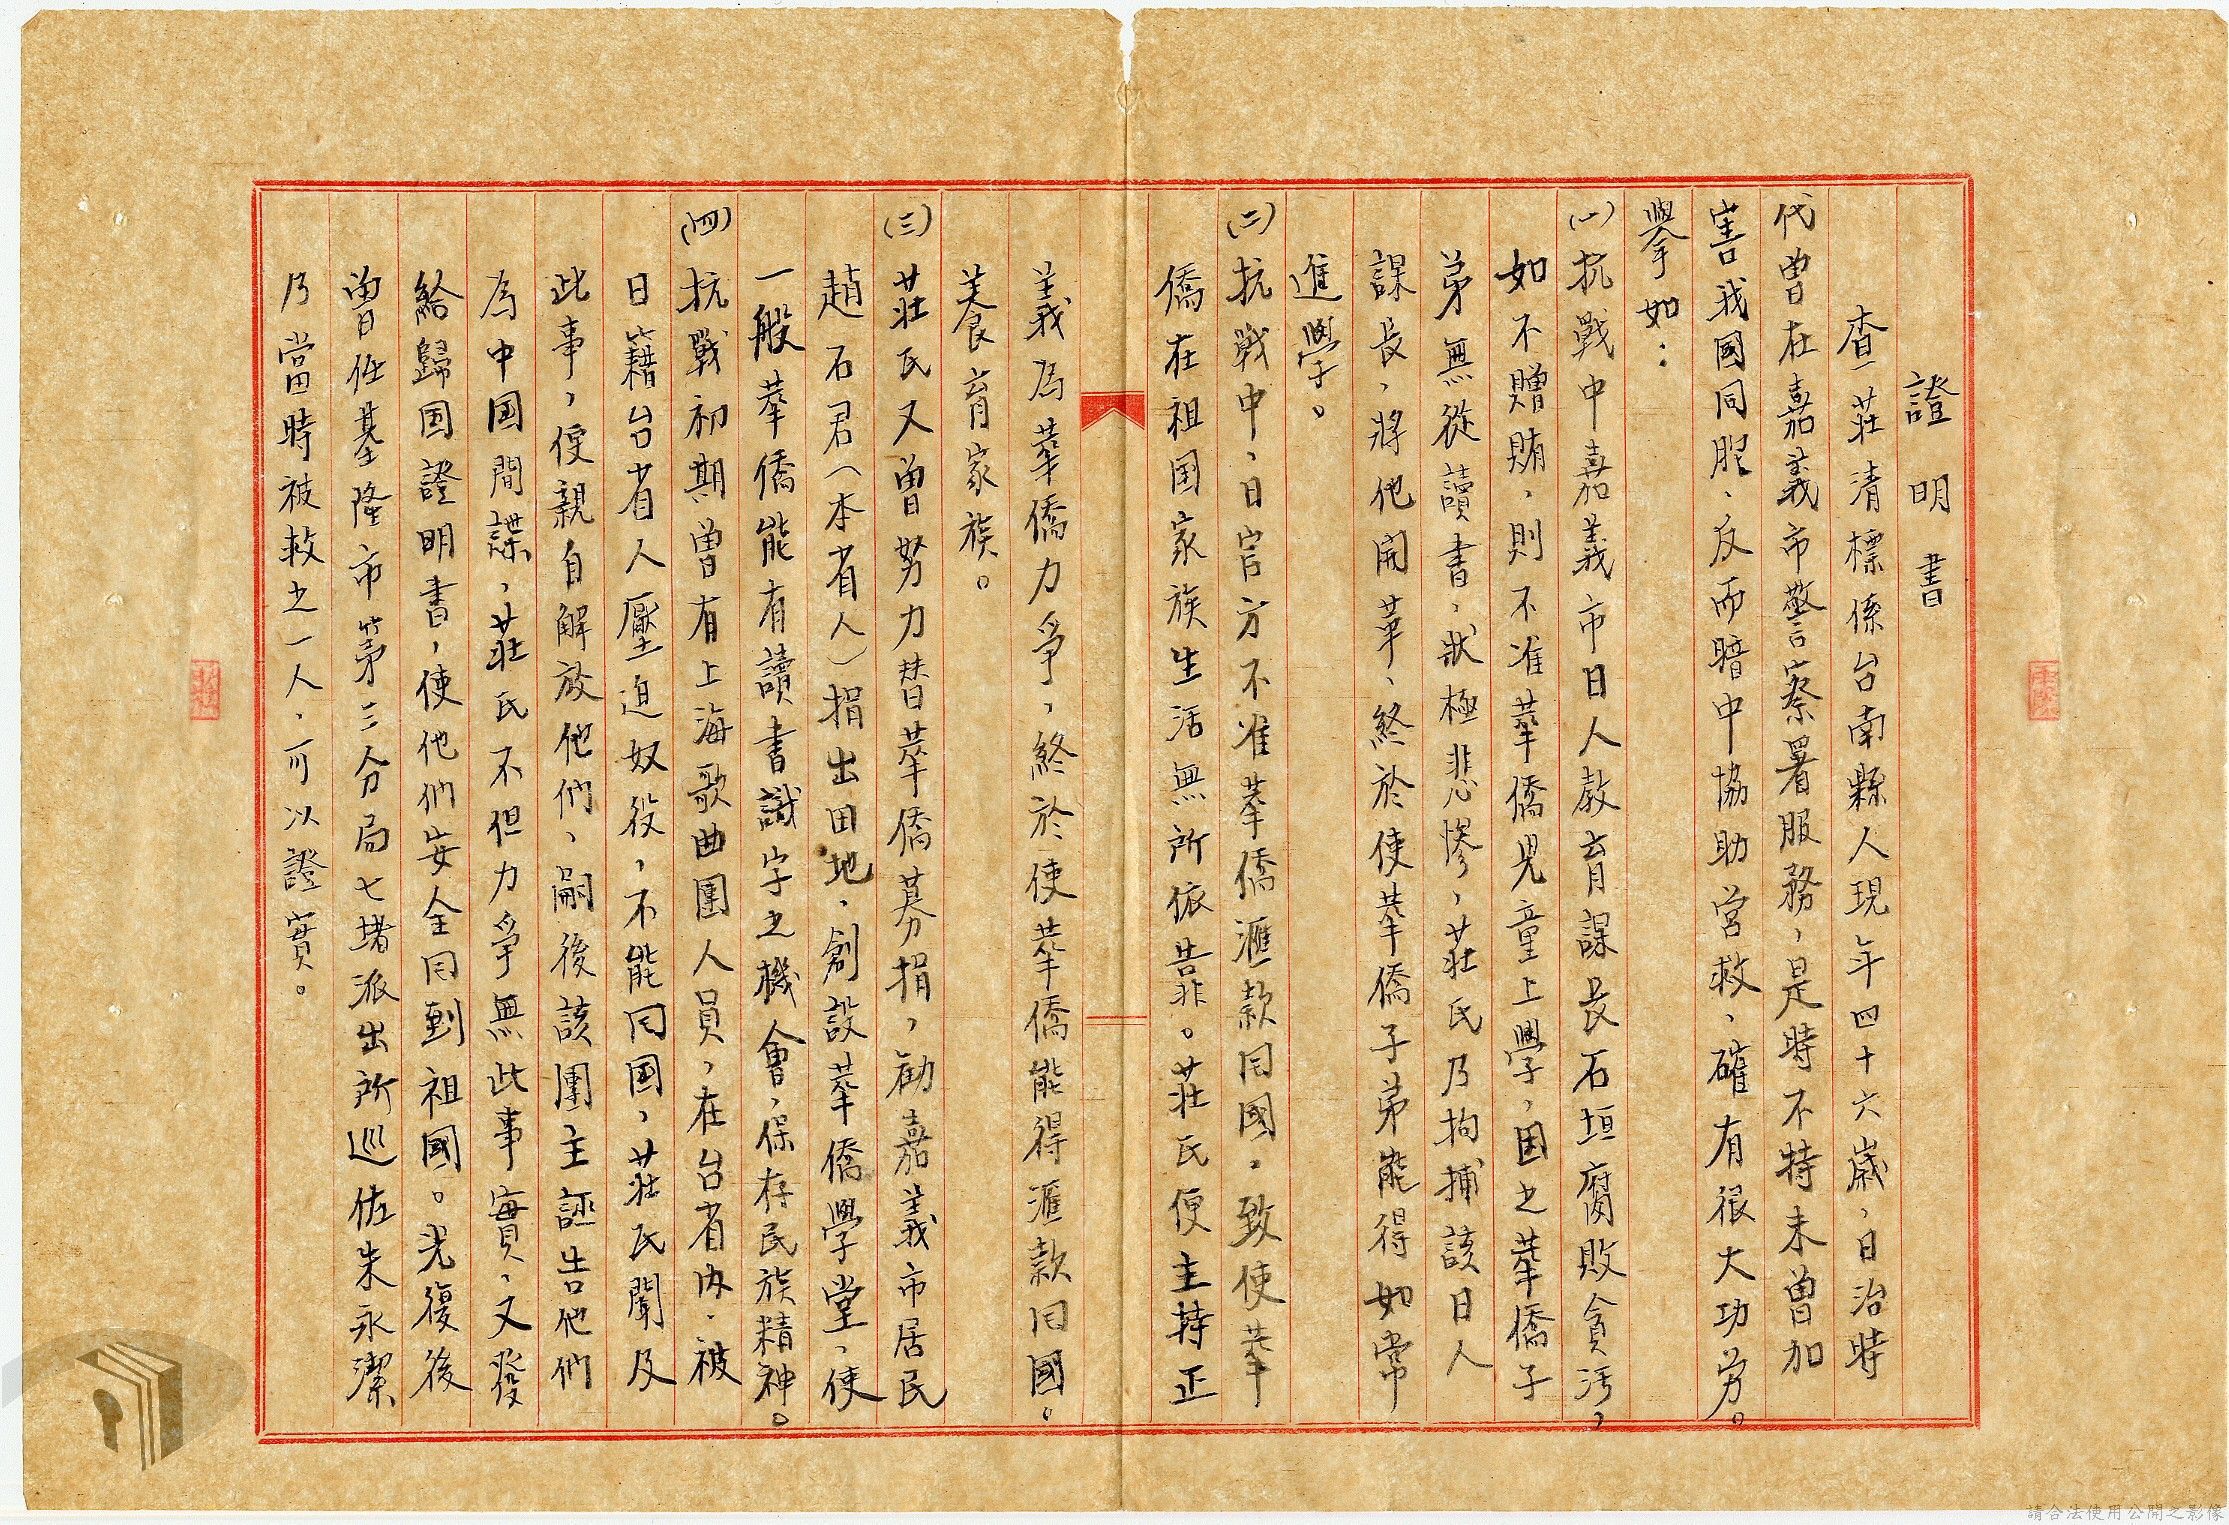 證明書
查莊清標係台南縣人現年四十六歲，日治時
代曾在嘉義市警察署服務，是時不特未曾加
害我國同胞、反而暗中協助営救、確有很大功労。
舉如：
(一)抗戰中嘉義市日人敎育課長石垣腐敗貪污，
如不贈賄，則不准華僑児童上學，因之華僑子
弟無從讀書，狀極悲慘，莊氏乃拘捕該日人
課長，將他開革、終於使華僑子弟能得如常
進學。
(二)抗戰中，日官方不准華僑滙款囘國，致使華
僑在祖国家族生活無所依靠。莊氏便主持正
義為華僑力爭，終於使華僑能得滙款囘國。
養育家族。
(三)莊氏又曾努力替華僑募捐，勸嘉義市居民
趙石君（本省人）捐出田地，創設華僑學堂，使
一般華僑能有讀書識字之機會，保存民族精神。
(四)抗戰初期曾有上海歌曲團人員，在台省內，被
日籍台省人壓迫奴役，不能囘国，莊民聞及
此事，便親自解放他們，嗣後該團主誣告他們
為中国間諜，莊氏不但力爭無此事實，又發
給歸国證明書，使他們安全囘到祖國。光復後
曾任基隆市第三分局七堵派出所巡佐朱永潔
乃當時被救之一人，可以證實。
請合法使用公開之影像